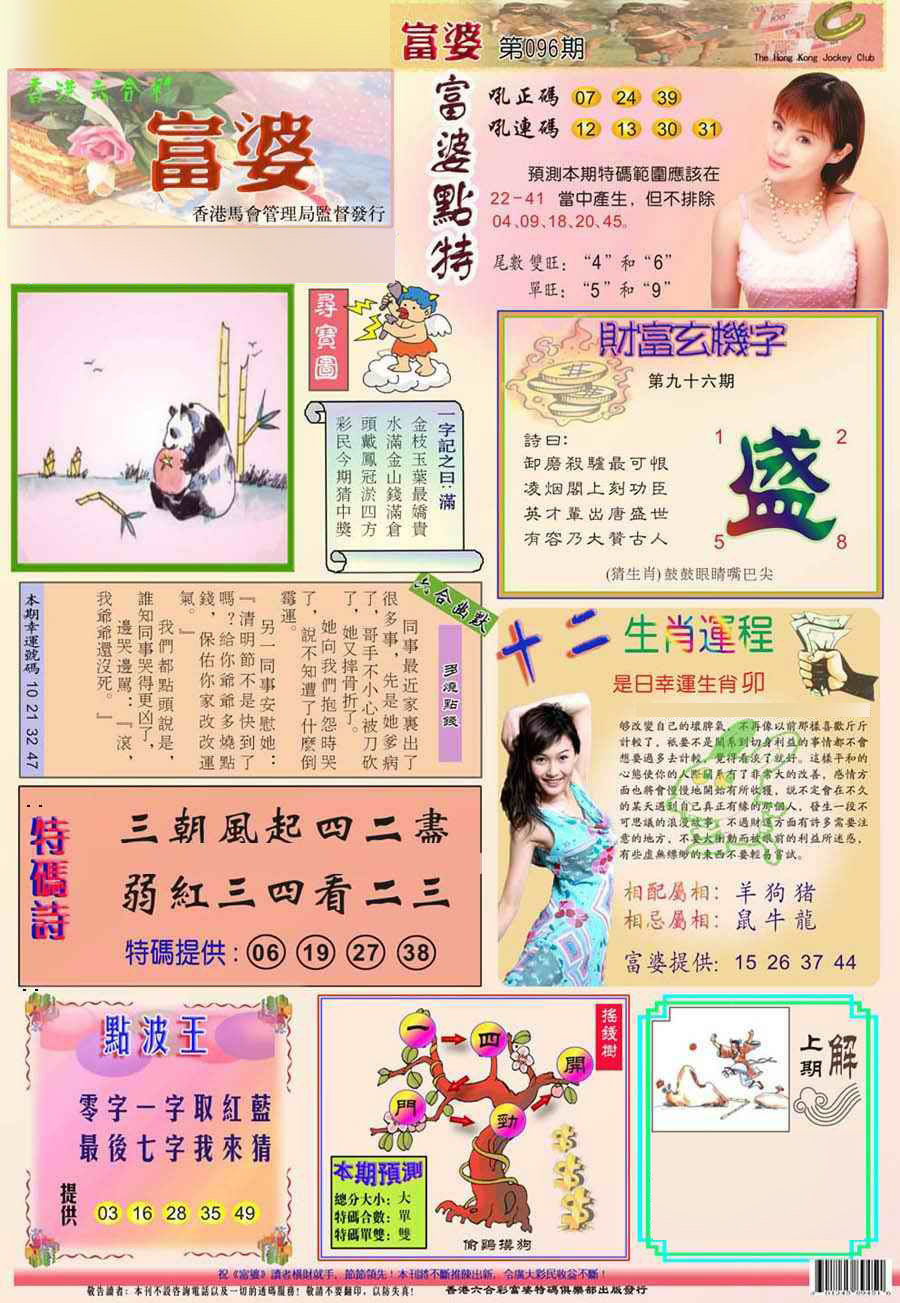 富婆 第096期
The Hong Kong Jockey Club
香港六合彩
富婆
香港馬會管理局監督發行
富婆點特
吼正碼 07 24 39
吼連碼 12 13 30 31
預測本期特碼範圍應該在
22-41 當中產生，但不排除
04、09、18、20、45。
尾數雙旺：“4”和“6”
單旺：“5”和“9”
尋寶圖
一字記之曰：滿
金枝玉葉最嬌貴
水滿金山錢滿倉
頭戴鳳冠淤四方
彩民今期猜中獎
財富玄機字
第九十六期
詩曰：
卸磨殺驢最可恨
凌烟閣上刻功臣
英才輩出唐盛世
有容乃大贊古人
1 2
盛
5 8
(猜生肖)鼓鼓眼睛嘴巴尖
六合幽默
多燒點錢
同事最近家裏出了
很多事，先是她爹病
了，哥手不小心被刀砍
了，她又摔骨折了。
她向我們抱怨時哭
了，說不知遭了什麽倒
霉運。
另一同事安慰她：
『清明節不是快到了
嗎？給你爺爺多燒點
錢，保佑你家改改運
氣。』
我們都點頭說是，
誰知同事哭得更凶了，
邊哭邊罵：『滾，
我爺爺還沒死。』
本期幸運號碼 10 21 32 47
十二生肖運程
是日幸運生肖 卯
够改變自己的壞脾氣，不再像以前那樣喜歡斤斤
計較了，祇要不是關系到切身利益的事情都不會
想要過多去計較，覺得看淡了就好。這樣平和的
心態使你的人際關系有了非常大的改善，感情方
面也將會慢慢地開始有所收獲，說不定會在不久
的某天遇到自己真正有緣的那個人，發生一段不
可思議的浪漫故事。不過財運方面有許多需要注
意的地方，不要太衝動而被眼前的利益所迷惑，
有些虛無縹緲的東西不要輕易嘗試。
相配屬相：羊 狗 猪
相忌屬相：鼠 牛 龍
富婆提供：15 26 37 44
特碼詩
三朝風起四二盡
弱紅三四看二三
特碼提供：06 19 27 38
點波王
零字一字取紅藍
最後七字我來猜
提供 03 16 28 35 49
搖錢樹
一 四 開
門 勁
本期預測
總分大小：大
特碼合數：單
特碼單雙：雙
偷鷄摸狗
上期解
祝《富婆》讀者橫財就手，節節領先！本刊將不斷推陳出新，令廣大彩民收益不斷！
敬告讀者：本刊不設咨詢電話以及一切的透碼服務！敬請不要翻印，以防失真！ 香港六合彩富婆特碼俱樂部出版發行